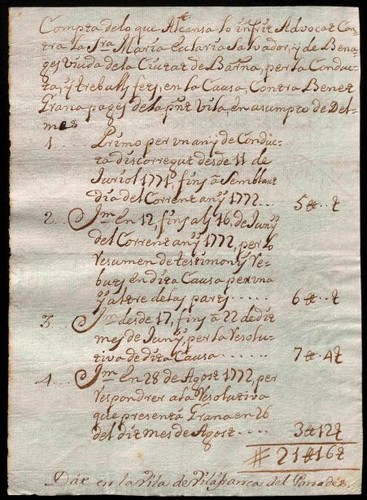 Compta de lo que Alcansa lo infrit Advocat Con
tra la Sra Maria Eularia Salvador, y de Bena
ges viuda de la Ciutat de Barna, per la Conduc
ta, y treballs fets, en la Causa, Contra Benet
Grana pages de la pnt Vila, en asumpto de Del
mes
1... Primo per un any de Conduc
ta discorregut desde 11 de
Juriol 1771, fins â Semblant
dia del Corrent any 1772... 5 ₶..ꝭ
2. Jtm En 12, fins als 16 de Juny
del Corrent any 1772, per lo
Resumen de testimonis y Re
buts en dita Causa per una
y altre de las parts..... 6 ₶..ꝭ
3. Jtm desde 17, fins â 22 de dit
mes de Juny, per la Resolu
tiva de dita Causa...... 7 ₶ 4ꝭ
4.. Jtm En 28 de Agost 1772, per
Respondrer a la Resolutiva
que presentá Grana en 26
del dit mes de Agost... 3 ₶ 12ꝭ
# 21 ₶ 16ꝭ
en la Vila de Vilafranca del Panades